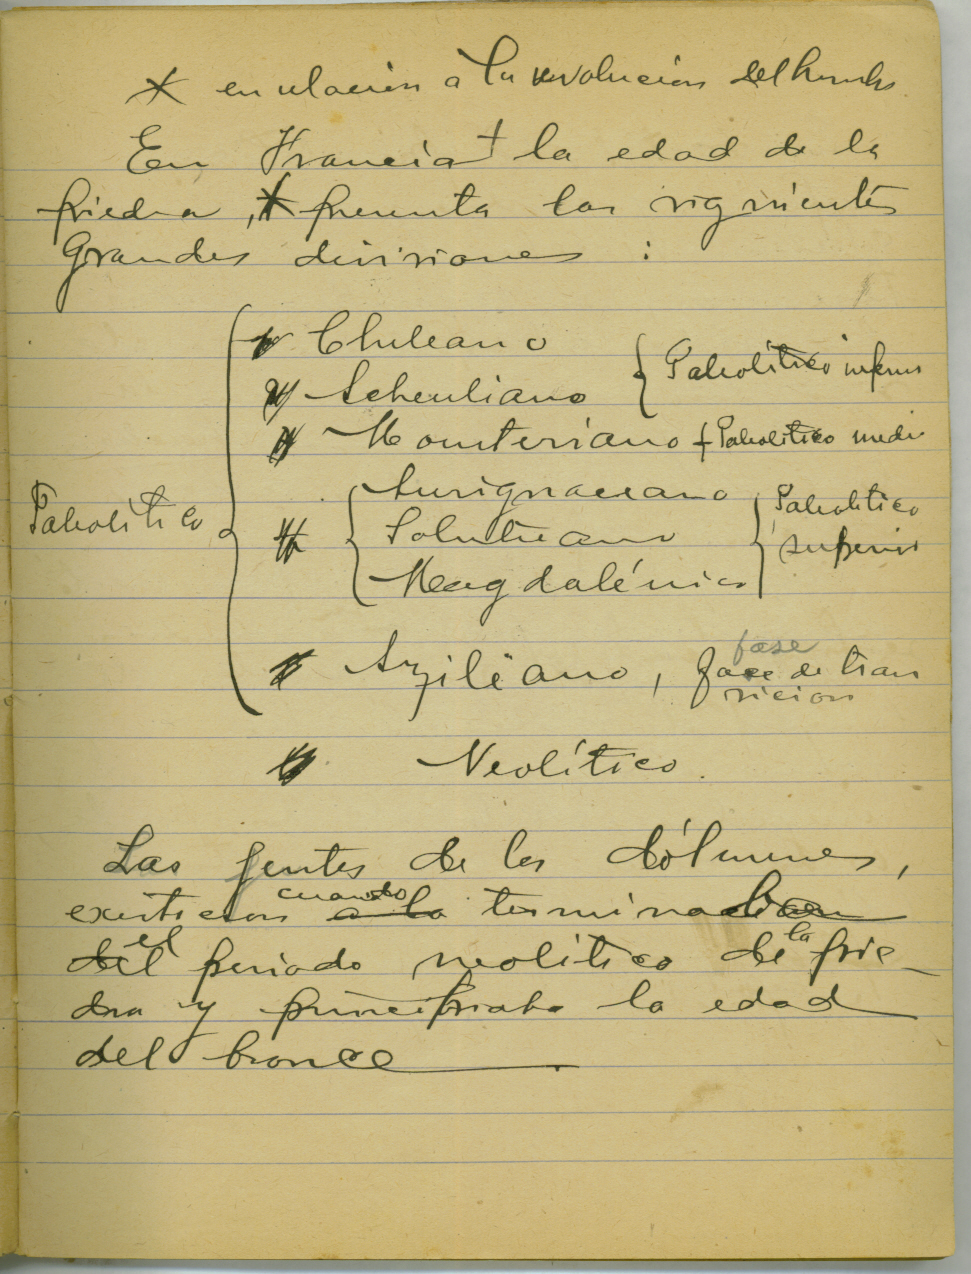 * en relación a la revolucion del hombre
En Francia † la edad de la
piedra, * presenta las siguientes
Grandes divisiones :
Cheleano
Acheuliano
{ Paleolítico inferior
Mousteriano { Paleolítico medio
Paleolítico
Aurignaceano
Solutreano
Magdalénico
Paleolitico
superior
Aziliano, fase de tran
fase
sicion
Neolítico.
Las gentes de los dólmenes,
existieron cuando a la terminaba
del el periodo neolítico de la pie-
dra y principiaba la edad
del bronce